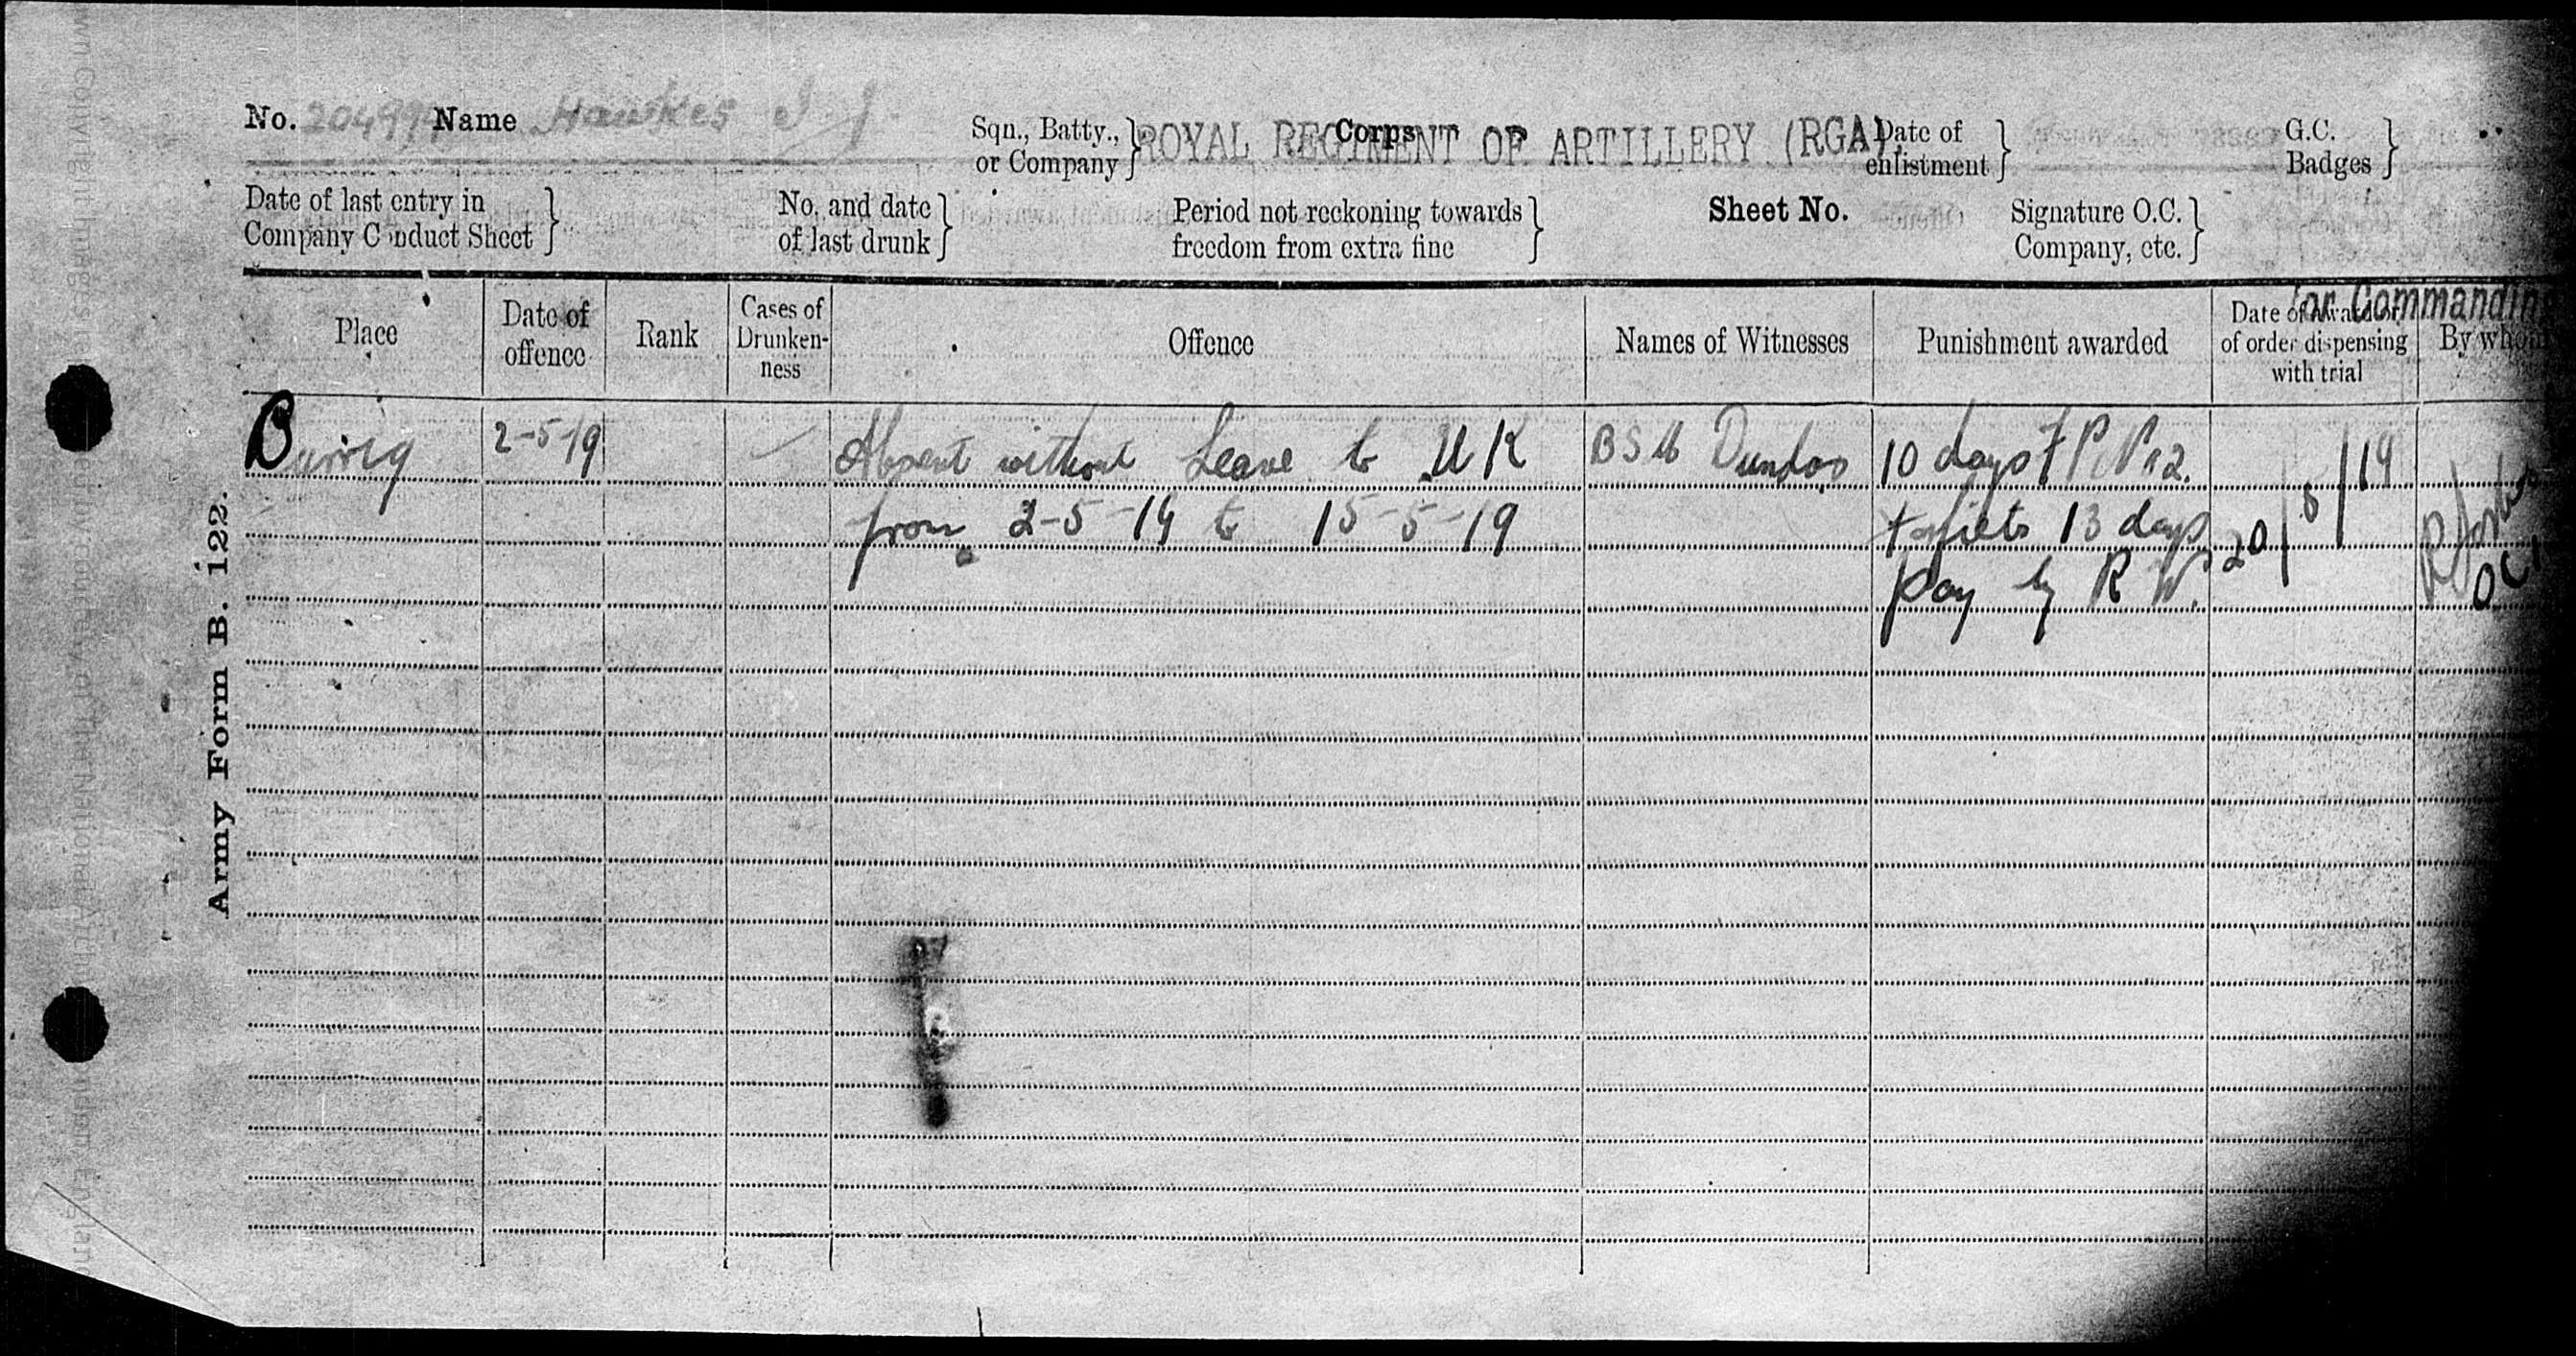 No. Name Hawkes
Sqn., Batty., or Company
Corps
ROYAL REGIMENT OF ARTILLERY (RGA)
Date of enlistment
G.C. Badges
Date of last entry in Company Conduct Sheet
No. and date of last drunk
Period not reckoning towards freedom from extra fine
Sheet No.
Signature O.C. Company, etc.
for Commanding
Place
Date of offence
Rank
Cases of Drunken-ness
Offence
Names of Witnesses
Punishment awarded
of order dispensing with trial
2-5-19
Absent without Leave to U K
from 2-5-19 to 15-5-19
BSM Dundas
10 days F P No 2.
13 days
pay by R W.
20/5/19
Army Form B. 122.